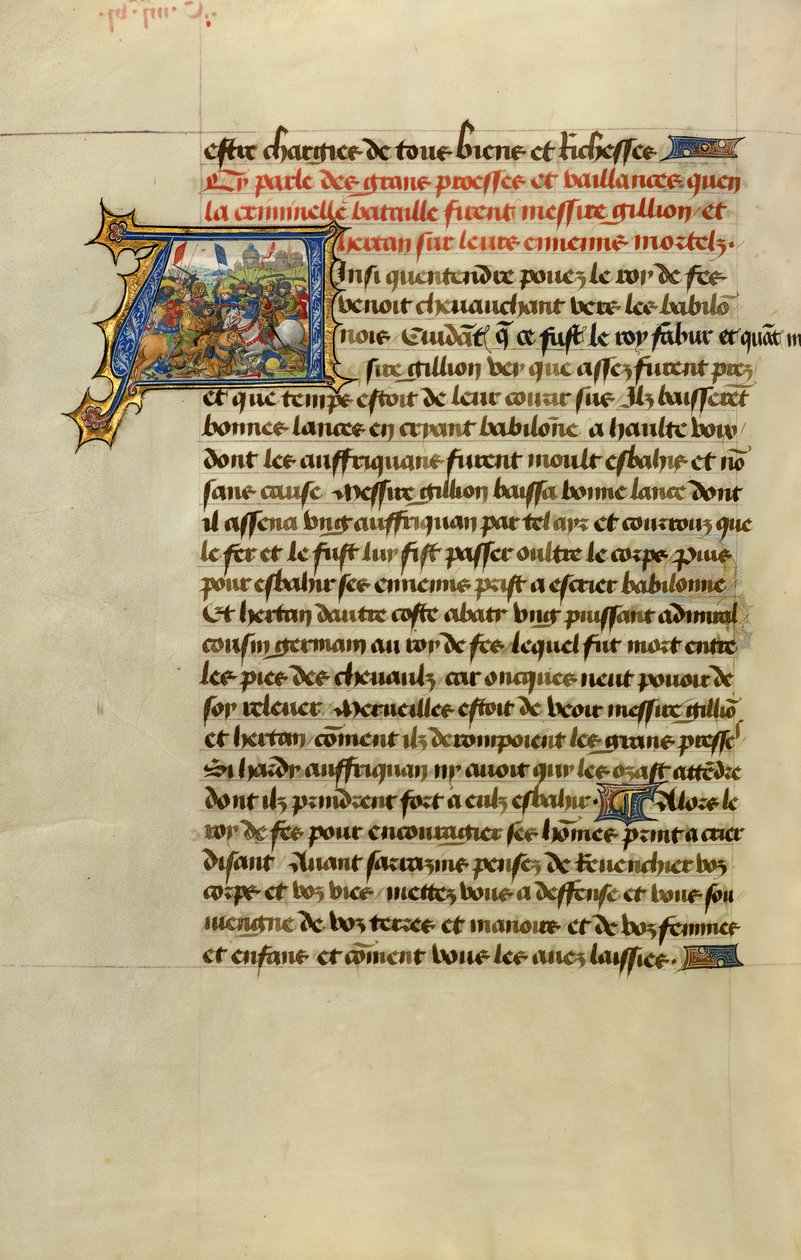 estre chargies de tous biens et Richesses
Cy parle des grans proesses et vaillances quen
la criminelle bataille firent messire gillion et
hertan sur leurs ennemis mortelz.
Ainsi quentendre povez le roy de fes
venoit chevauchant vers les babilō
nois Cuidāt q̄ ce fust le roy fabur et quāt m
sire gillion vey que assez furent prez
et que temps estoit de leur courir sus Ilz baisserēt
bonnes lances en cryant babilōne a haulte voix
dont les auffriquans furent moult esbahis et nō
sans cause Messire gillion baissa bonne lance dont
il assena vng auffriquan par tel ayr et courrouz que
le fer et le fust luy fist passer oultre le corps Puis
pour esbahir ses ennemis prist a escrier babilonne
Et hertan dautre coste abaty vng puissant admiral
cousin germain au roy de fes lequel fut mort entre
les pies des chevaulz car oncques neut povoir de
soy relever Merveilles estoit de veoir messire gilliō
et hertan cōment ilz derompoient les grans presses
Si hardy auffriquan ny avoit quy les ozast attēdre
dont ilz prindrent fort a eulz esbahir. Alors le
roy de fes pour encouragier ses hōmes print a crier
disant Avant sarrazins pensez de Revenchier voz
corps et voz vies mettez vous a deffense et vous sou
viengne de voz terres et manoirs et de voz femmes
et enfans et cōment vous les avez laissies.